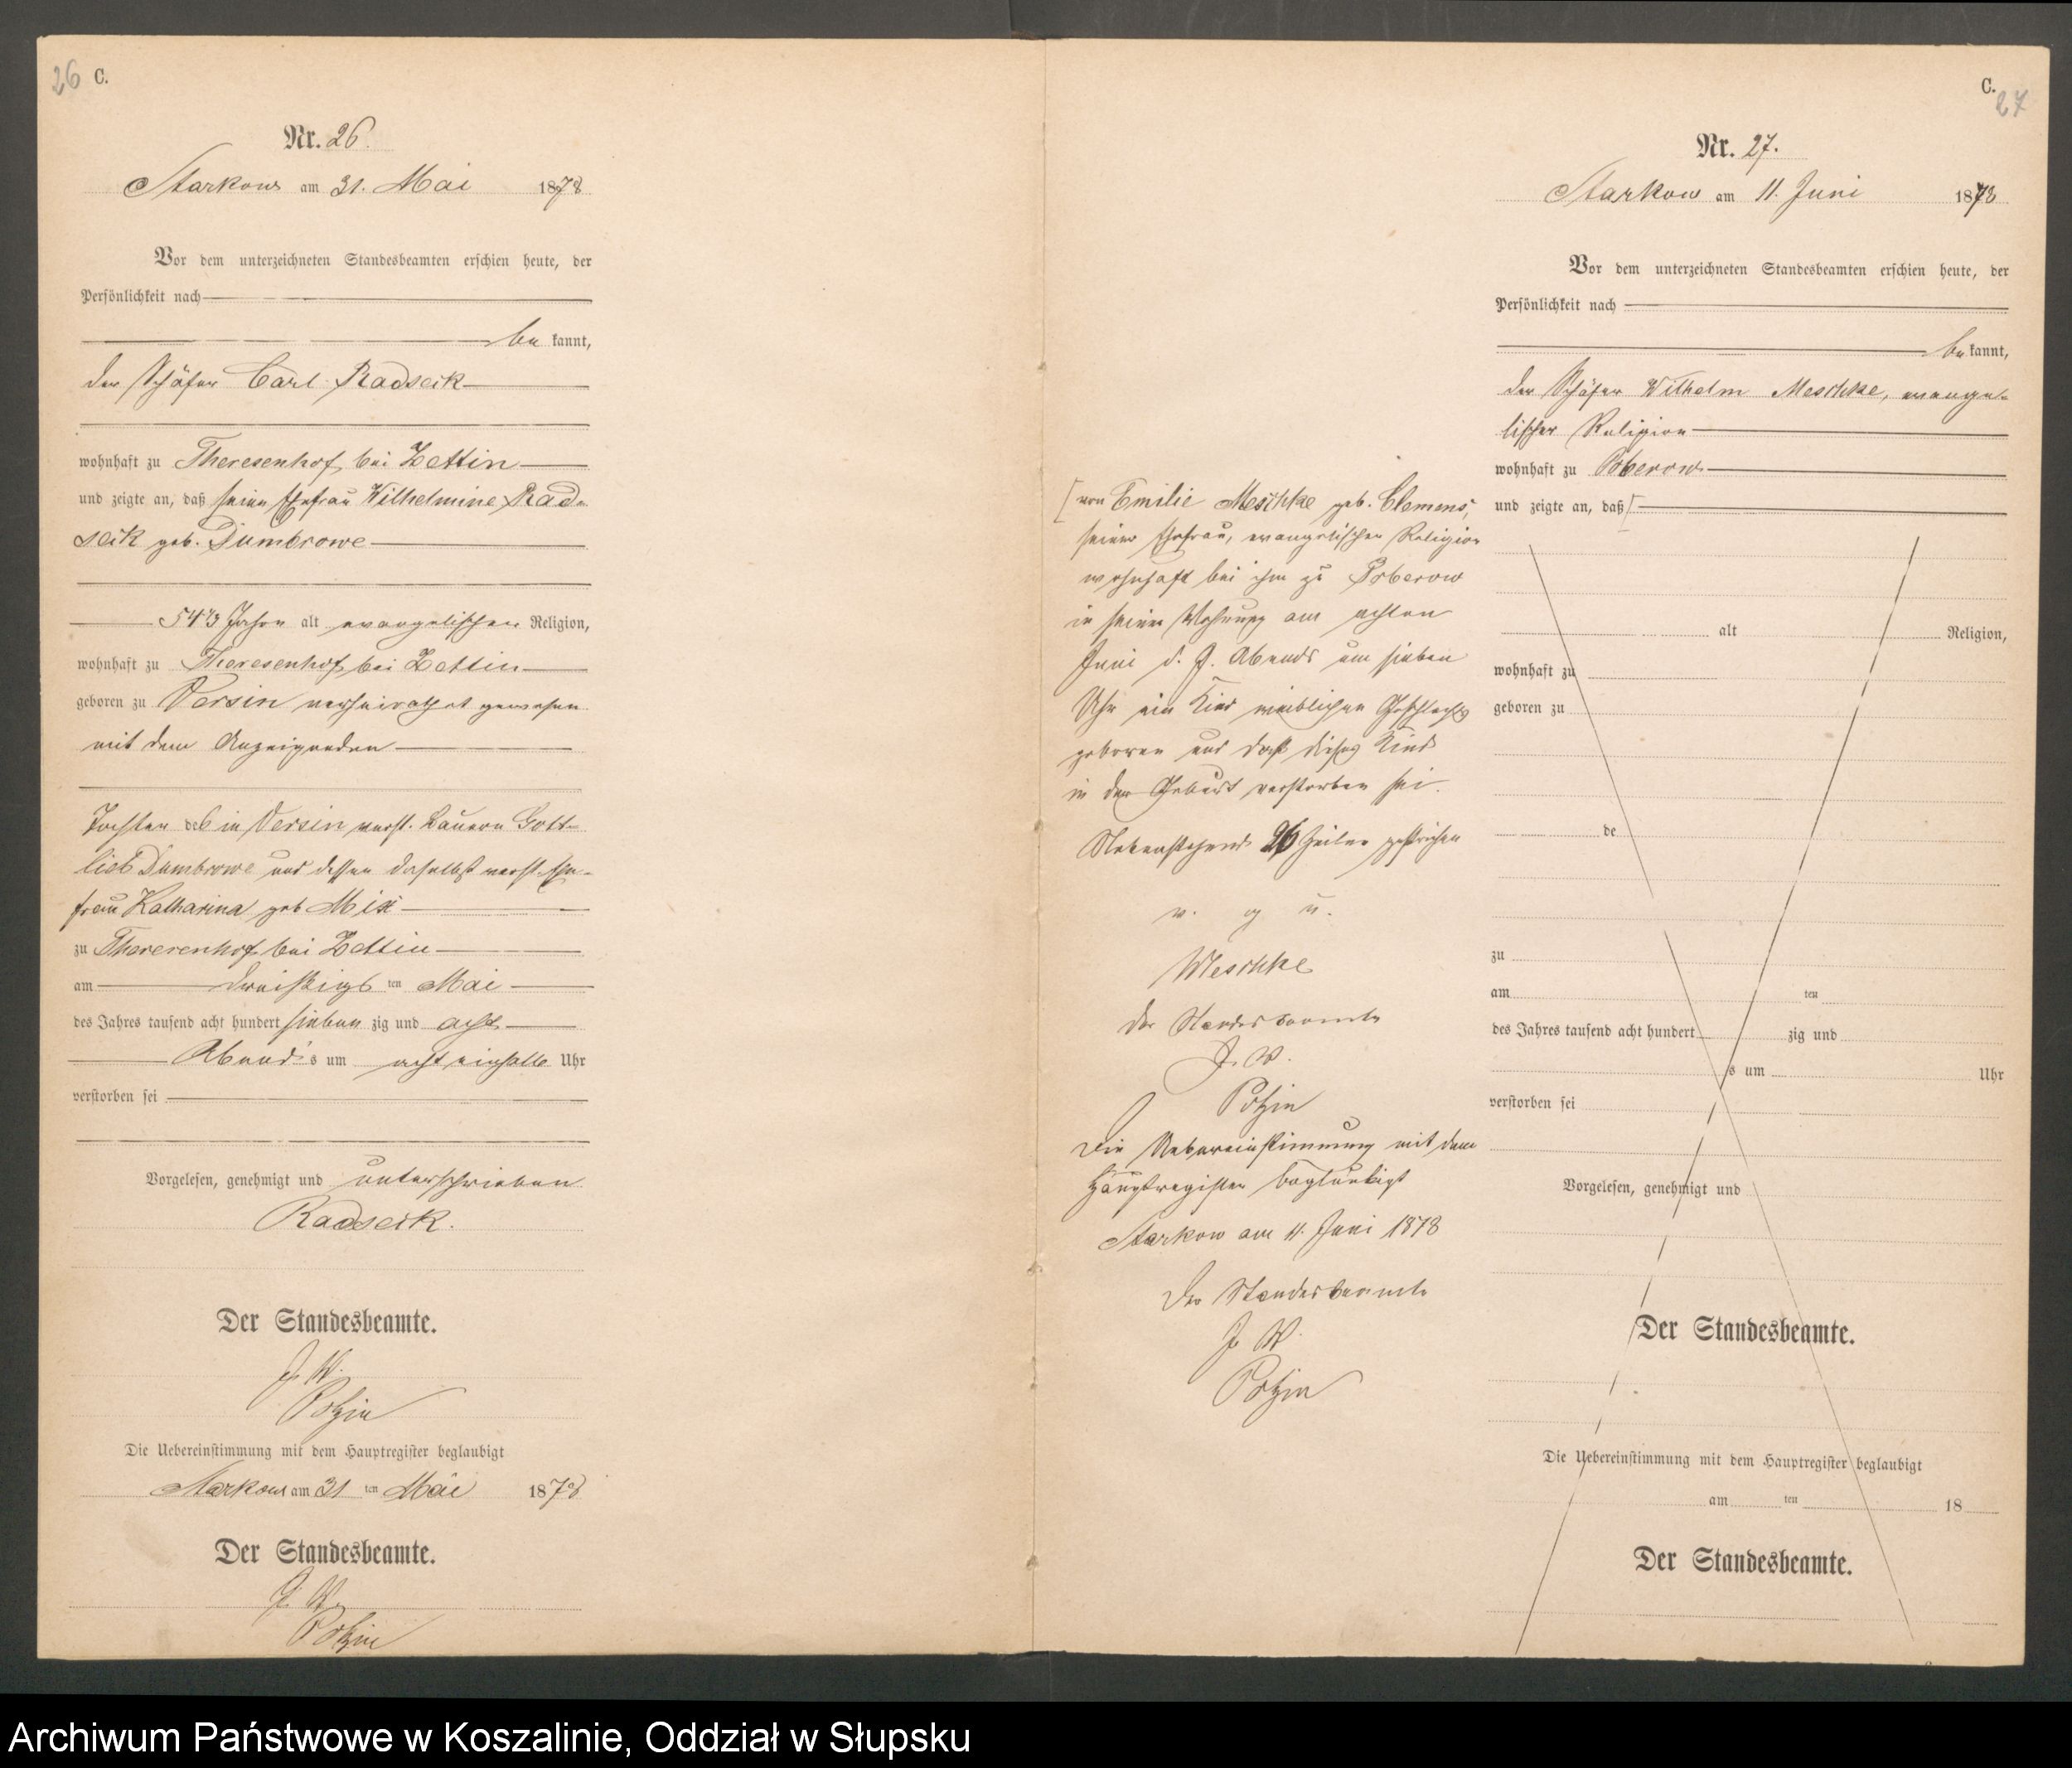 26 C.
Nr. 26.
Starkow am 31. Mai 1878
Vor dem unterzeichneten Standesbeamten erschien heute, der
Persönlichkeit nach
be kannt,
der Schäfer Carl Radseck
wohnhaft zu Theresenhof bei Zettin
und zeigte an, daß seine Ehefrau Wilhelmine Rad-
seck geb. Dumbrowe
54 Jahre alt evangelischer Religion,
wohnhaft zu Theresenhof bei Zettin
geboren zu Versin verheirathet gewesen
mit dem Anzeigenden
Tochter des in Versin verst. Bauern Gott-
lieb Dumbrowe und dessen daselbst verst. Ehe-
frau Katharina geb Mix
zu Theresenhof bei Zettin
am dreißigs ten Mai
des Jahres tausend acht hundert sieben zig und acht
Abend s um acht einhalb Uhr
verstorben sei
Vorgelesen, genehmigt und unterschrieben
Radseck.
Der Standesbeamte.
J. V.
Potzin
Die Uebereinstimmung mit dem Hauptregister beglaubigt
Starkow am 31 ten Mai 1878
Der Standesbeamte.
J. V.
Potzin
C.
27
Nr. 27.
Starkow am 11. Juni 1878
Vor dem unterzeichneten Standesbeamten erschien heute, der
Persönlichkeit nach
be kannt,
der Schäfer Wilhelm Meschke, evange-
lischer Religion
wohnhaft zu Poberow
und zeigte an, daß [
[von Emilie Meschke geb. Clemens,
seiner Ehefrau, evangelischer Religion
wohnhaft bei ihm zu Poberow
in seiner Wohnung am achten
Juni d. J. Abends um sieben
Uhr ein Kind weiblichen Geschlechts
geboren und daß dieses Kind
in der Geburt verstorben sei.
Nebenstehende 26 Zeilen gestrichen
v. g u.
Meschke
Der Standesbeamte
J. V.
Potzin
Die Uebereinstimmung mit dem
Hauptregister beglaubigt
Starkow am 11. Juni 1878
Der Standesbeamte
J. V.
Potzin
alt Religion,
wohnhaft zu
geboren zu
de
zu
am ten
des Jahres tausend acht hundert zig und
s um Uhr
verstorben sei
Vorgelesen, genehmigt und
Der Standesbeamte.
Die Uebereinstimmung mit dem Hauptregister beglaubigt
am ten 18
Der Standesbeamte.
Archiwum Państwowe w Koszalinie, Oddział w Słupsku